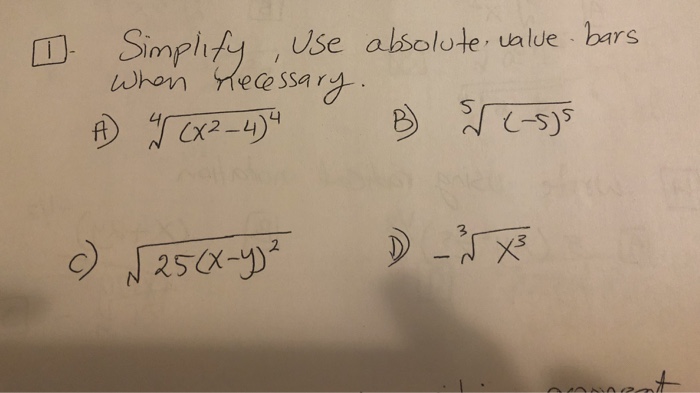 1. Simplify, Use absolute value bars
when necessary.
A) ∜(x²-4)⁴ B) ⁵√(-5)⁵
C) √25(x-y)² D) -∛x³